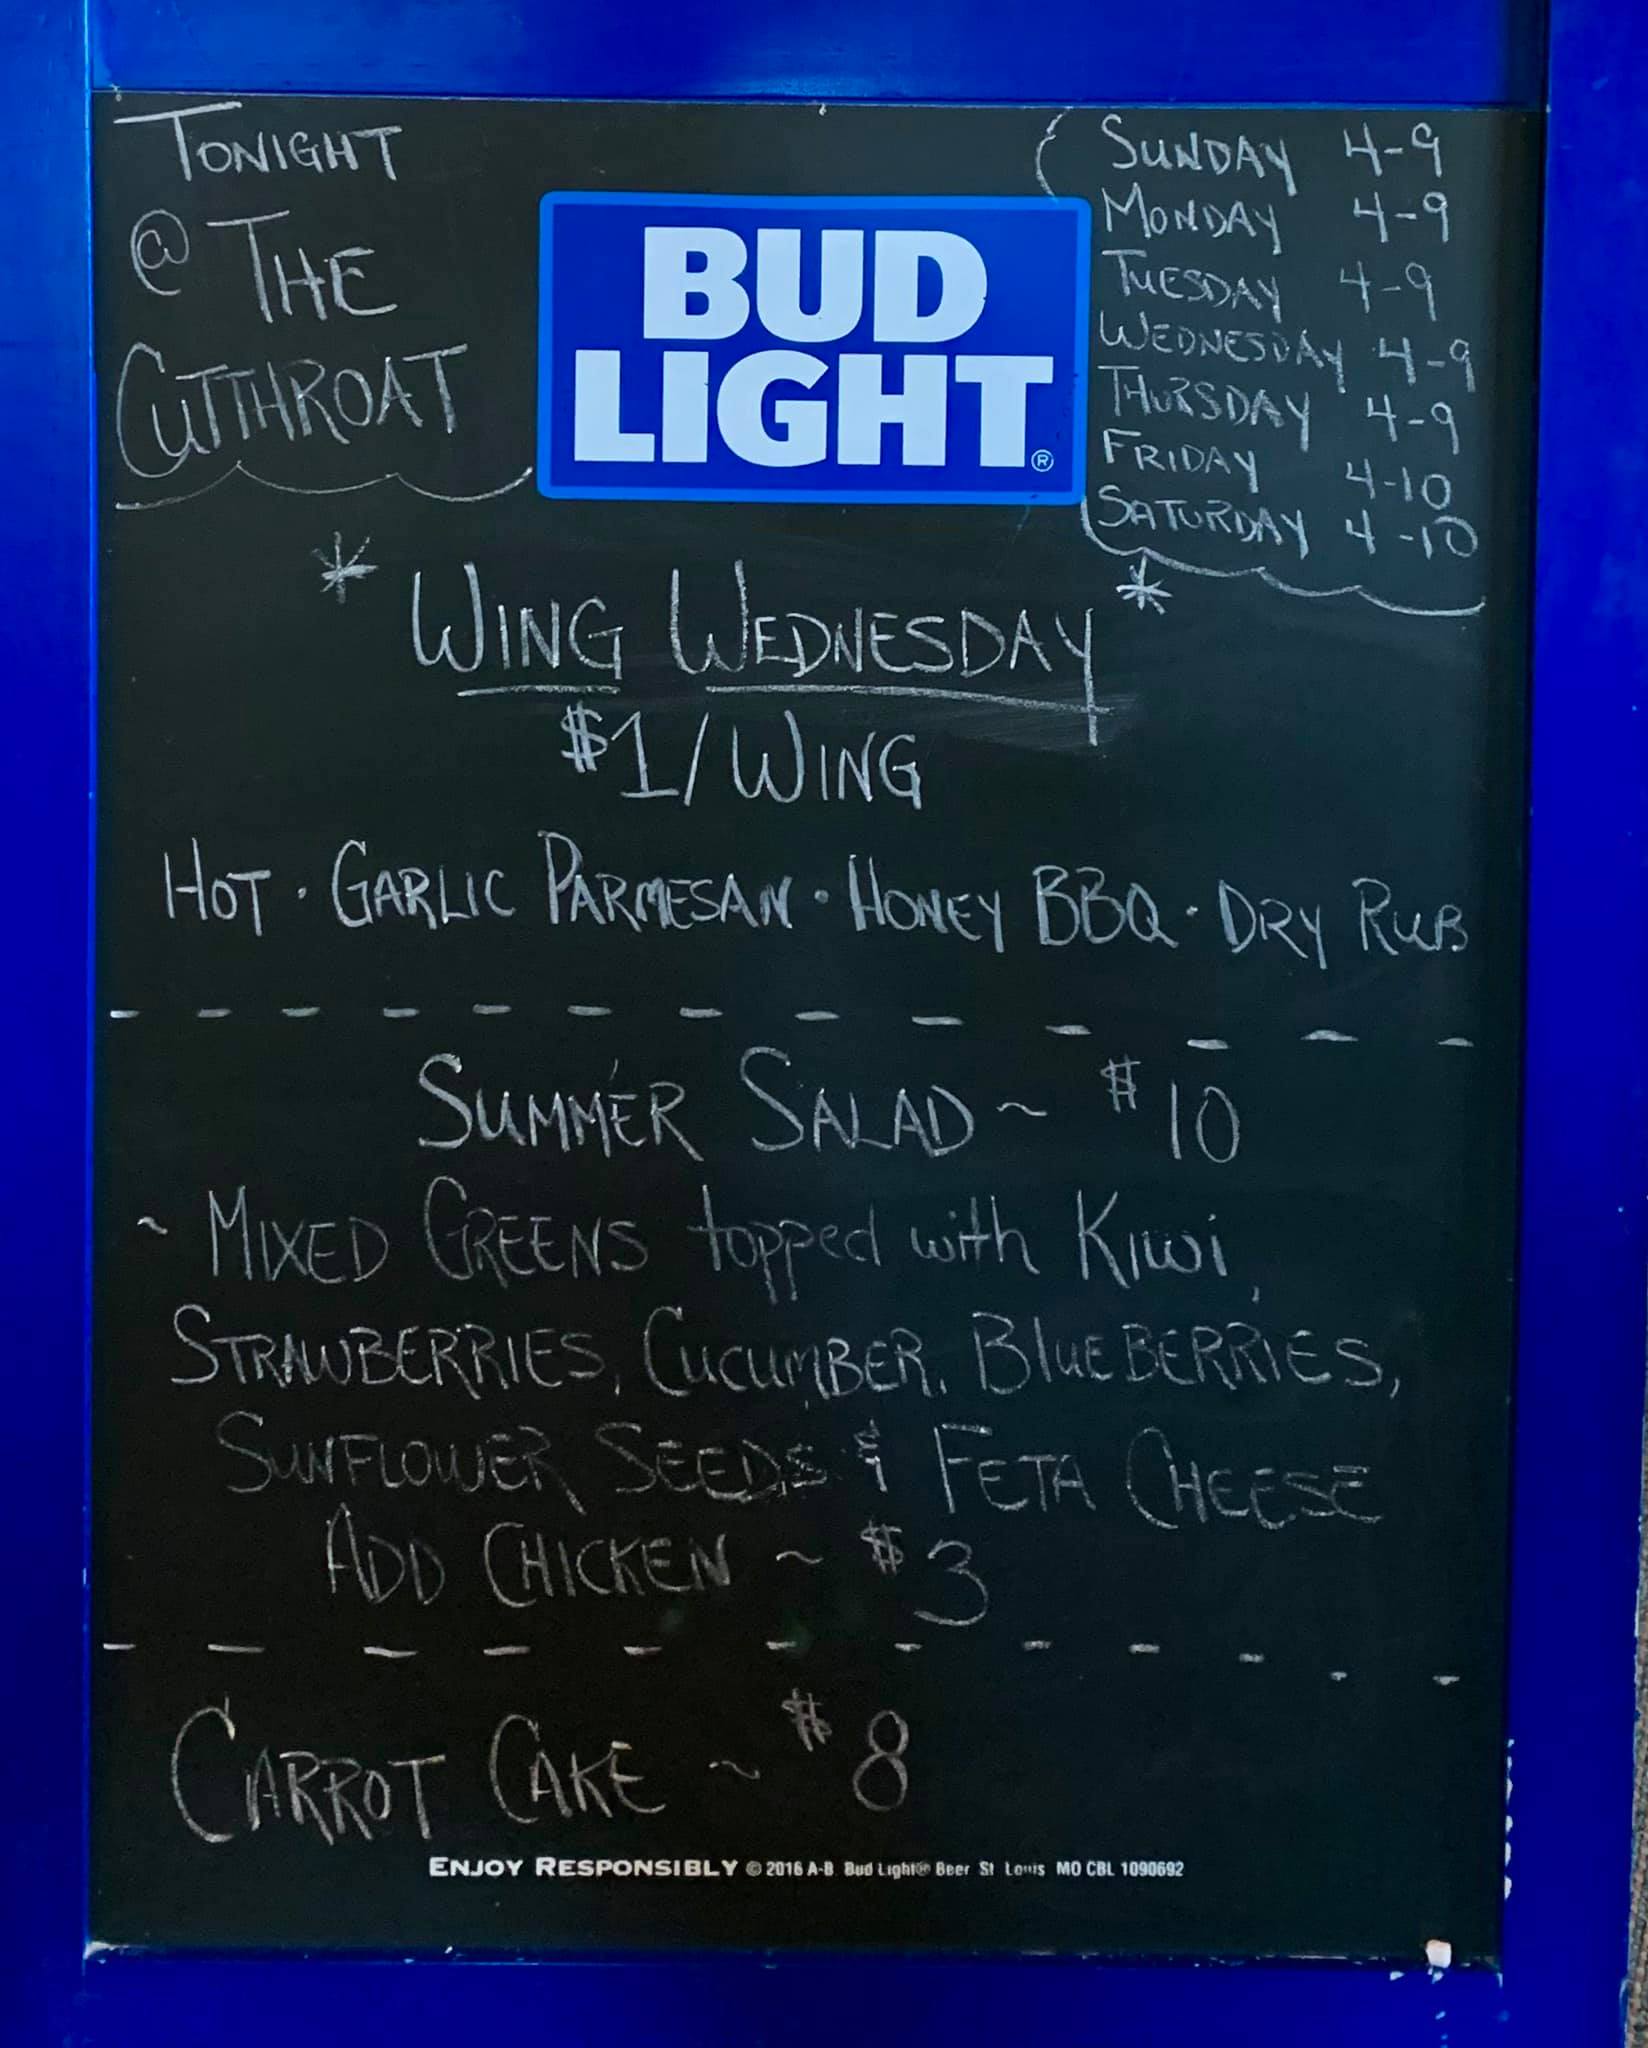 TONIGHT
@ THE
CUTTHROAT
BUD
LIGHT®
SUNDAY 4-9
MONDAY 4-9
TUESDAY 4-9
WEDNESDAY 4-9
THURSDAY 4-9
FRIDAY 4-10
SATURDAY 4-10
* WING WEDNESDAY *
$1/WING
HOT · GARLIC PARMESAN · HONEY BBQ · DRY RUB
SUMMER SALAD ~ $10
~ MIXED GREENS topped with Kiwi,
STRAWBERRIES, CUCUMBER, BLUEBERRIES,
SUNFLOWER SEEDS & FETA CHEESE
ADD CHICKEN ~ $3
CARROT CAKE ~ $8
ENJOY RESPONSIBLY © 2016 A-B. Bud Light® Beer St Louis MO CBL 1090692